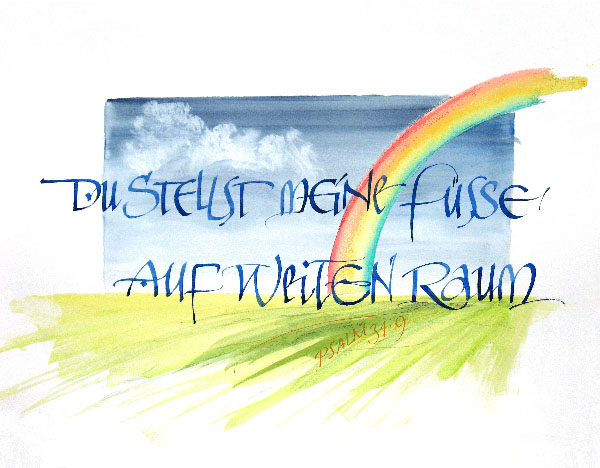 Du stellst meine Füsse
auf weiten Raum
Psalm 31.9